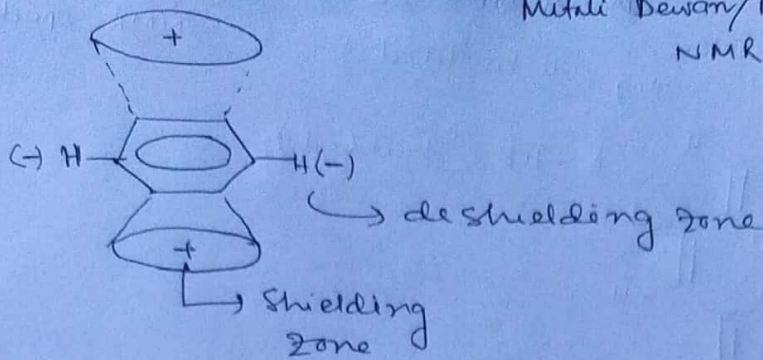 Mitali Dewan/
NMR
+
(-) H H(-)
deshielding zone
+
Shielding
zone